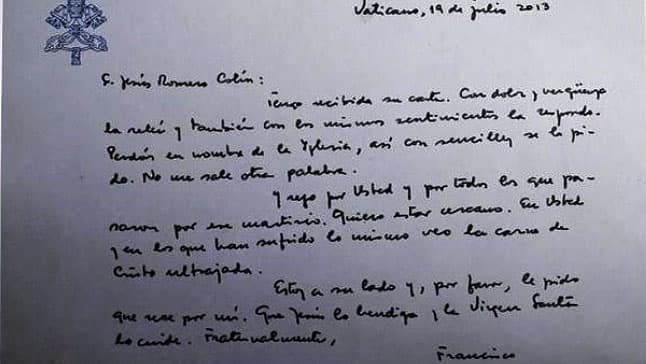 Vaticano, 19 de julio 2013
S. Jesús Romero Colín:
Tengo recibida su carta. Con dolor y vergüenza
la releí y también con los mismos sentimientos la respondo.
Perdón en nombre de la Iglesia, así con sencillez se lo pi-
do. No me sale otra palabra.
Y rezo por Usted y por todos los que pa-
saron por ese martirio. Quiero estar cercano. En Usted
y en los que han sufrido lo mismo veo la carne de
Cristo ultrajada.
Estoy a su lado y, por favor, le pido
que rece por mí. Que Jesús lo bendiga y la Virgen Santa
lo cuide. Fraternalmente,
Francisco